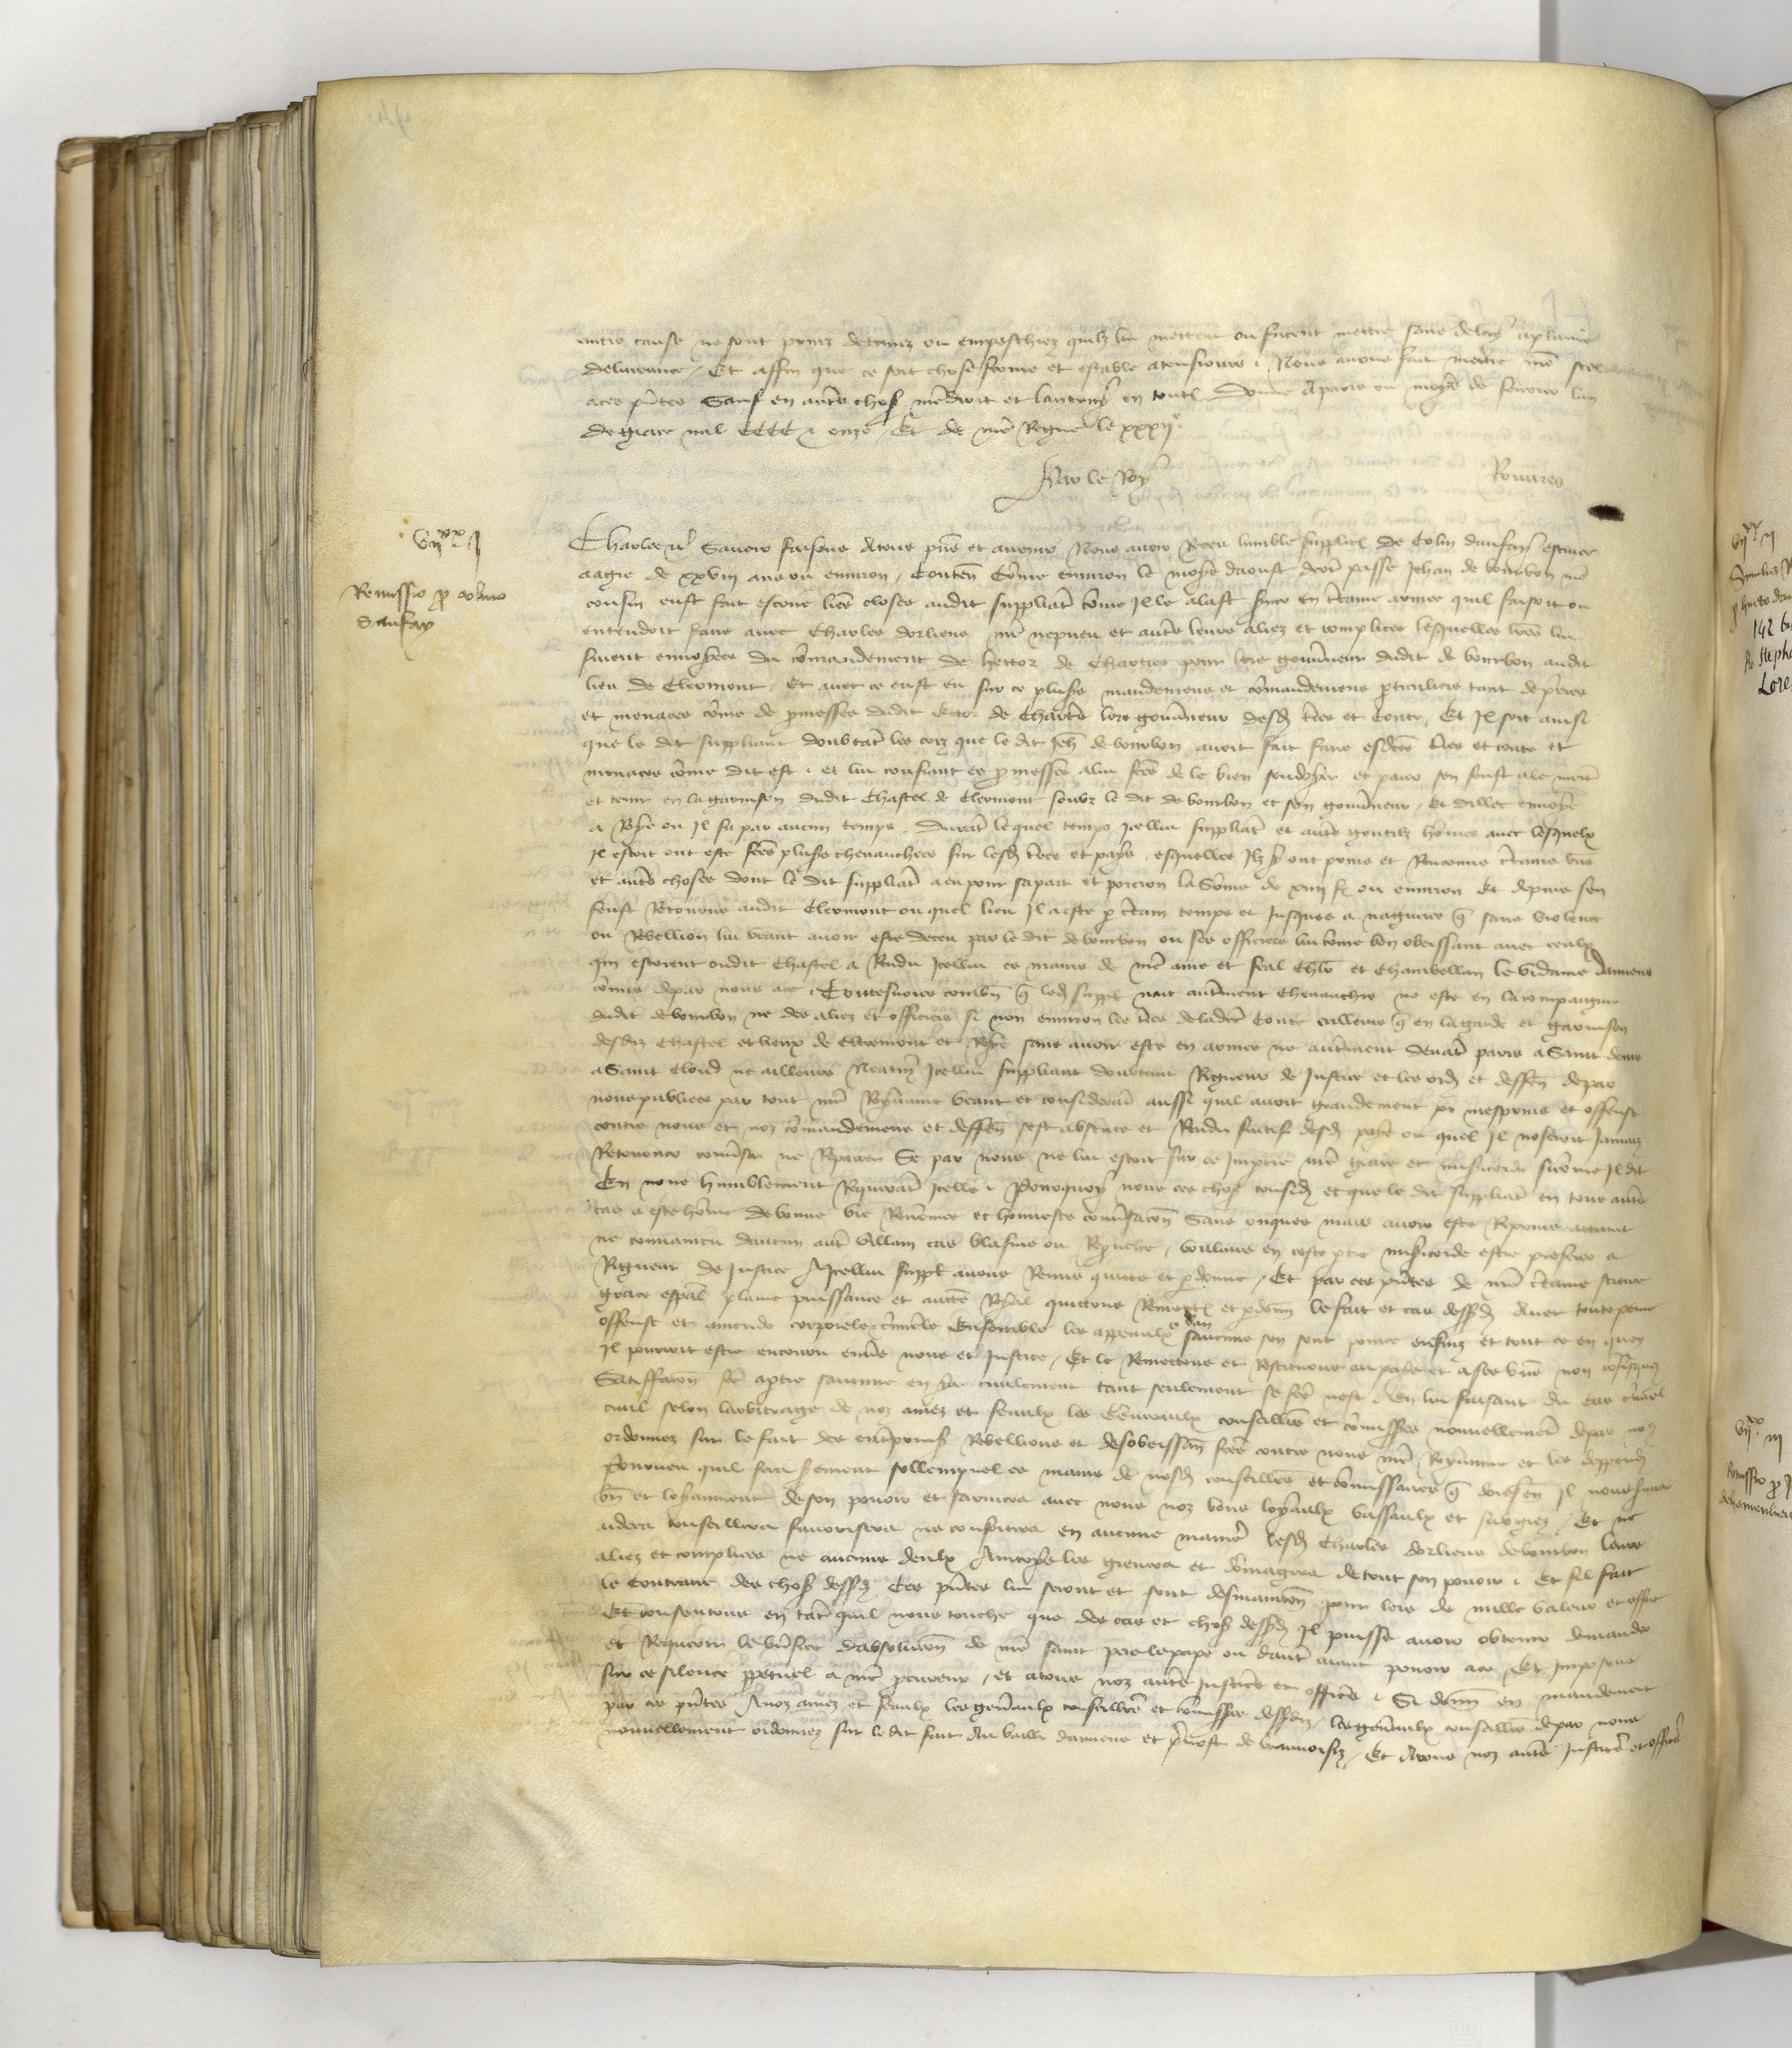 autre cause ne sont prins detenuz ou empeschiez quilz lui mettent ou facent mettre sans delay a plaine
delivrance / Et affin que ce soit chose ferme et estable a tousiours Nous avons fait mettre nre scel
a ces pntes Sauf en autres chos nre droit et lautruy en toutes Donne a paris ou moys de fevrier lan
de grace mil CCCC et onze Et de nre Regne le xxxije
Par le Roy
VIIxx I
Remissio pro colino
Daufay
Charles etc Savoir faisons A tous pns et avenir Nous avoir Receu lumble supplicacion De Colin daufay escuier
aagie de xxviii ans ou environ / Conten Come environ le moys daoust derr passe Jehan de bourbon nre
cousin eust fait escrire lres closes audit suppliant come Il le alast servir en certaine armee quil faisoit ou
entendoit faire avec Charles dorliens nre nepveu et autres leurs aliez et complices lesquelles lres lui
furent envoyees du comandement de hector de Chartres pour lors gouverneur dudit de bourbon audit
lieu de Clermont / Et avec ce eust eu sur ce plusrs mandemens et comandemens particuliers tant de prieres
et menaces come de promesses dudit Ector de Chartres lors gouverneur desd terres et Conte / Et Il soit ainsi
que le dit suppliant doubtant les criz que le dit Jeh de bourbon avoit fait faire esdctes terres et conte et
menaces come dit est et lui confiant es promesses a lui fctes de le bien souldoyer et paier sen feust ale mectre
et tenir en la garnison dudit Chastel de Clermont soubz le dit de bourbon et son gouverneur / Et dillec envoye
a Roye ou Il fu par aucun temps / Durant lequel temps Icellui suppliant et autres gentilz homes avec lesquelx
Il estoit ont este fctes plusrs chevauchees sur lesd terres et pays / esquelles Ilz ont prins et Ranconne certains
et autres choses dont le dit suppliant a eu pour sa part et porcion la Some de xiiii fs ou environ Et depuis sen
feust Retourne audit Clermont ou quel lieu Il a este par certain temps et Jusques a naguieres que sans violence
ou Rebellion lui veant avoir este deceu par le dit de bourbon ou ses officiers lui come bon obeissant avec ceulx
qui estoient oudit Chastel a Rendu Icellui es mains de nre ame et feal Chlr et Chambellan le vidame damiens
comis depar nous a ce Toutesvoies combn que led suppl nait autrement chevauchie ne este en la compaignie
dudit de bourbon ne des aliez et officiers si non environ les terres de ladicte Conte ailleurs que en la garde et garnison
desdiz Chastel et lieux de Clermont et Roye sans avoir este en armes ne autrement devant paris a Saint denis
a Saint Cloud ne ailleurs Neantms Icellui suppliant doubtant Rigueur de Justice et les ord et deffen depar
nous publiees par tout nre Royaume veant et considerant aussi quil avoit grandement mesprins et offense
contre nous et noz comandemens et deffen sest absente et Rendu fuitif desd pays ou quel Il noseroit Jamaiz
Retourner converser ne Repairer Se par nous ne lui estoit sur ce Impartie nre grace et misericorde sicome Il dit
En nous humblement Requerant Icelle Pourquoy nous ces chos considerees et que le dit suppliant en tous autres
cas a este home de bonne vie Renomee et honneste conversacion Sans onques mais avoir este Reprins attaint
ne convaincu daucun autre villain cas blasme ou Reproche / voulans en ceste partie misericorde estre preferee a
Rigueur de Justice A Icellui suppl avons Remis quicte et pardonne / Et par ces pntes de nre certaine science
grace espal plaine puissance et auctte Royal quictons Remettons et pardon le fait et cas dessusd Avec toute peine
offense et amende corporele criminele Ensemble les appeaulx et ban saucuns sen sont prinz ensuiz et tout ce en quoy
Il pourroit estre encouru envers nous et Justice / Et le Remettons et Restituons au pays et a ses biens non confisquez
Satisfaction fcte a partie savcune en y a civilement tant seulement se fcte nest En lui faisant du cas criminel
civil selon larbitrage de noz amez et feaulx les Generaulx conseilliers et comissrs nouvellement depar nous
ordonnez sur le fait des entreprins Rebellions et desobeissances fctes contre nous nre Royaume et les deppend
Pourveu quil fera serement sollempnel es mains de nosd conseilliers et comissaires que doresen Il nous servira
bn et loyaument de son povoir et servira avec nous noz bons loyaulx vassaulx et subgiez Et ne
aidera conseillera favorisera ne confortera en aucune maniere lesd Charles dorliens de bourbon leurs
aliez et complices ne aucuns deulx Aincoys les grevera et domagera de tout son povoir Et sil fait
le Contraire des chos dessusd Ces pntes lui seront et sont desmainten pour lors de nulle valeur et effect
Et consentons en tant quil nous touche que des cas et chos dessusd Il puisse avoir obtenir demander
et Requerir le benefice dabsolucion de nre saint pere le pape ou dautre aiant povoir a ce / Et Imposons
sur ce silence ppetuel a nre procureur / et a tous noz autres Justiciers et officiers Si donn en mandement
par ces pntes A noz amez et feaulx les generaulx conseilliers et comissrs dessusdiz / les generaulx conseilliers depar nous
nouvellement ordonnez sur le dit fait Au bailli damiens et prevost de beauvoisiz / Et A tous noz autres Justiciers et officiers